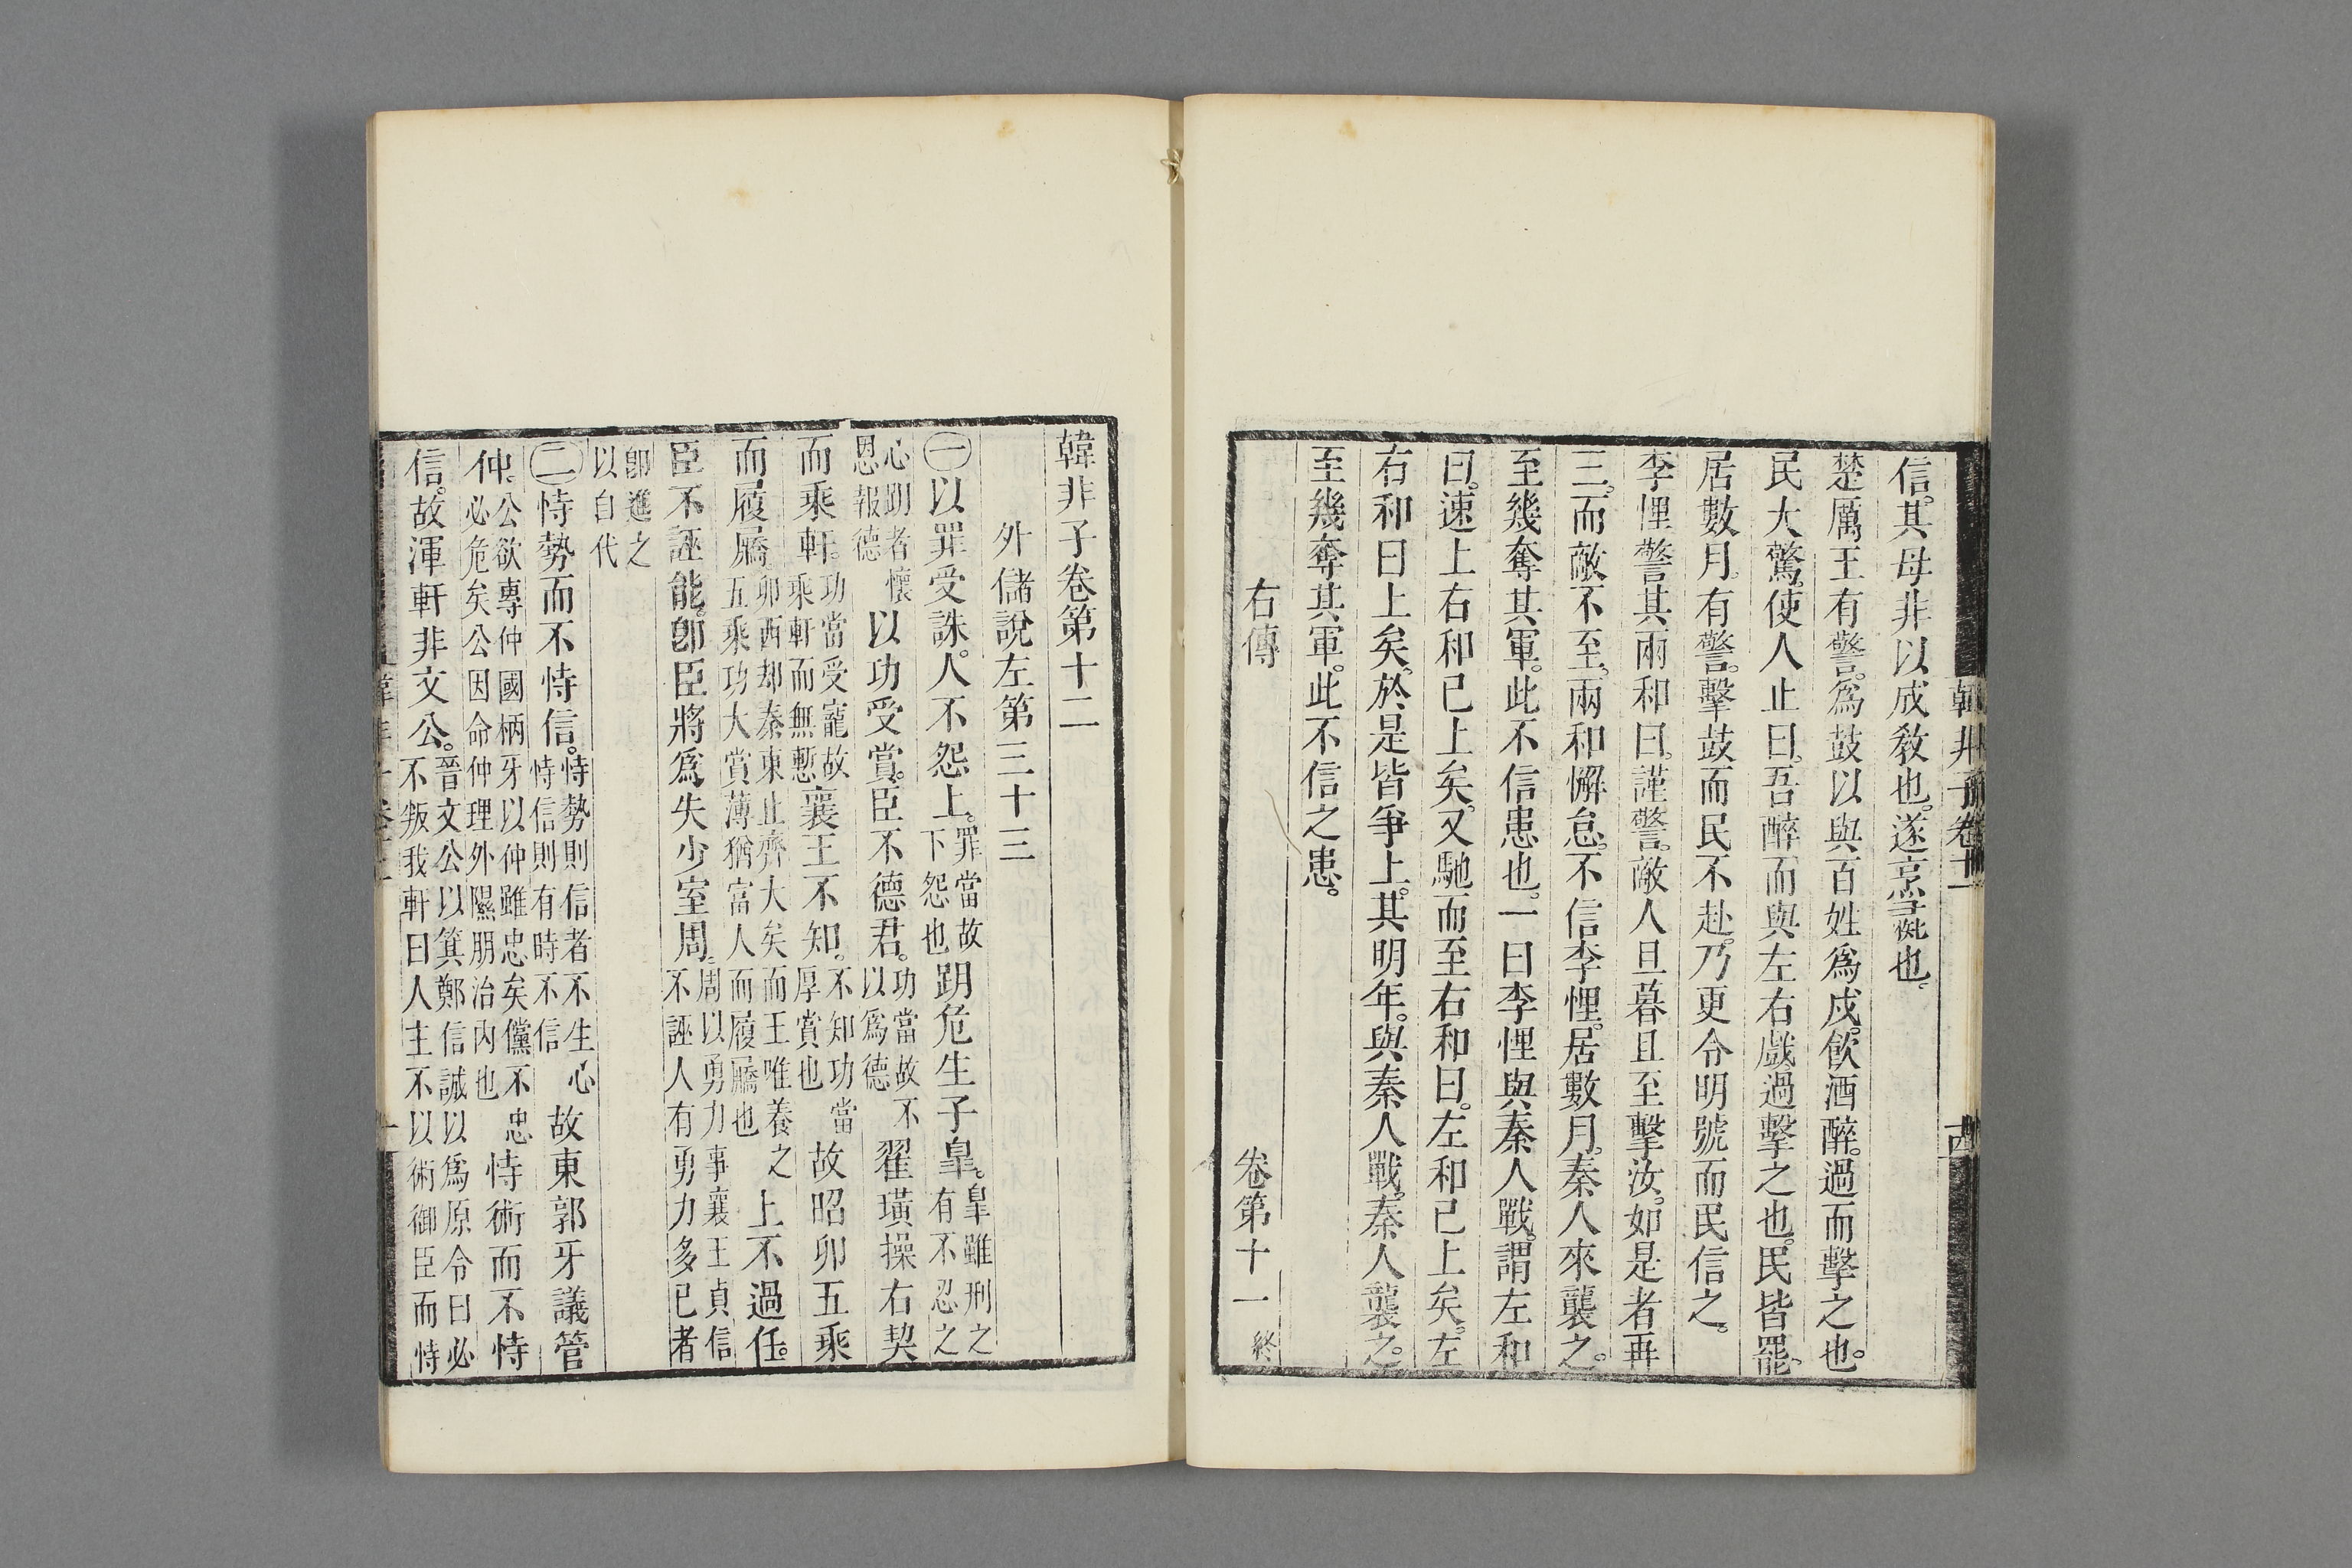 信。其母非以成教也。遂烹彘也。
楚厲王有警。爲鼓以與百姓爲戍。飲酒醉。過而擊之也。
民大驚。使人止曰。吾醉而與左右戲過擊之也。民皆罷。
居數月。有警。擊鼓而民不赴。乃更令明號而民信之。
李悝警其兩和曰。謹警。敵人旦暮且至擊汝。如是者再
三。而敵不至。兩和懈怠。不信李悝。居數月。秦人來襲之。
至幾奪其軍。此不信患也。一曰李悝與秦人戰。謂左和
曰。速上右和已上矣。又馳而至右和曰。左和已上矣。左
右和曰上矣。於是皆爭上。其明年。與秦人戰。秦人襲之。
至幾奪其軍。此不信之患。
右傳
卷第十一 終
韓非子卷第十二
外儲說左第三十三
㊀以罪受誅。人不怨上。罪當故下怨也跀危生子皐。皐雖刑之有不忍之
心跀者懷恩報德以功受賞。臣不德君。功當故不以爲德翟璜操右契
而乘軒。功當受寵故乘軒而無慙襄王不知。不知功當厚賞也故昭卯五乘
而履屩。卯西却秦東止齊大矣而王唯養之五乘功大賞薄猶富人而履屩也上不過任。
臣不誣能。卽臣將爲失少室周。周以勇力事襄王貞信不誣人有勇力多已者
卽進之以自代
㊁恃勢而不恃信。恃勢則信者不生心恃信則有時不信故東郭牙議管
仲。公欲專仲國柄牙以仲雖忠矣儻不忠必危矣公因命仲理外隰朋治內也恃術而不恃
信。故渾軒非文公。晉文公以箕鄭信誠以爲原令曰必不叛我軒曰人主不以術御臣而恃